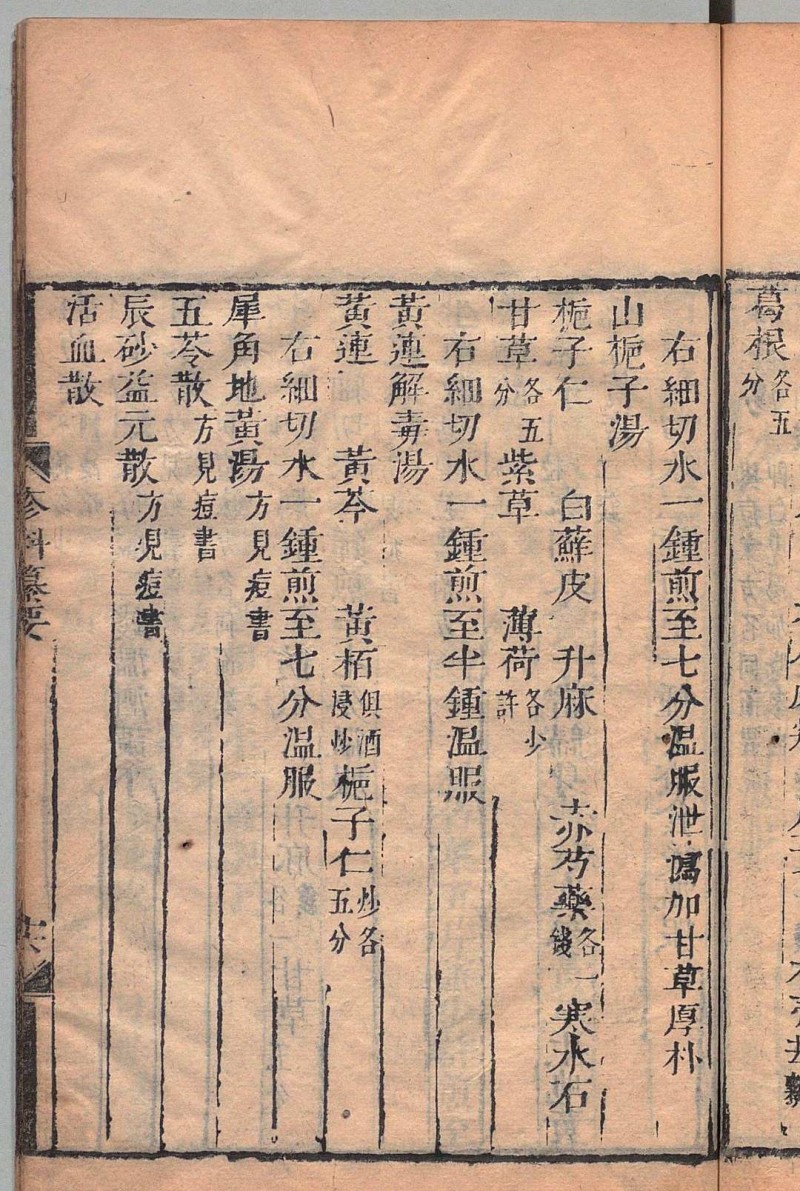 葛根各五分
右細切水一鍾煎至七分温服泄瀉加甘草厚朴
山梔子湯
梔子仁 白蘚皮 升麻 赤芍藥各一錢 寒水石
甘草各五分 紫草 薄荷各少許
右細切水一鍾煎至半鍾温服
黄連解毒湯
黄連 黄芩 黄栢俱酒浸炒 梔子仁炒各五分
右細切水一鍾煎至七分温服
犀角地黄湯方見痘書
五苓散方見痘書
辰砂益元散方見痘書
活血散
疹科纂要